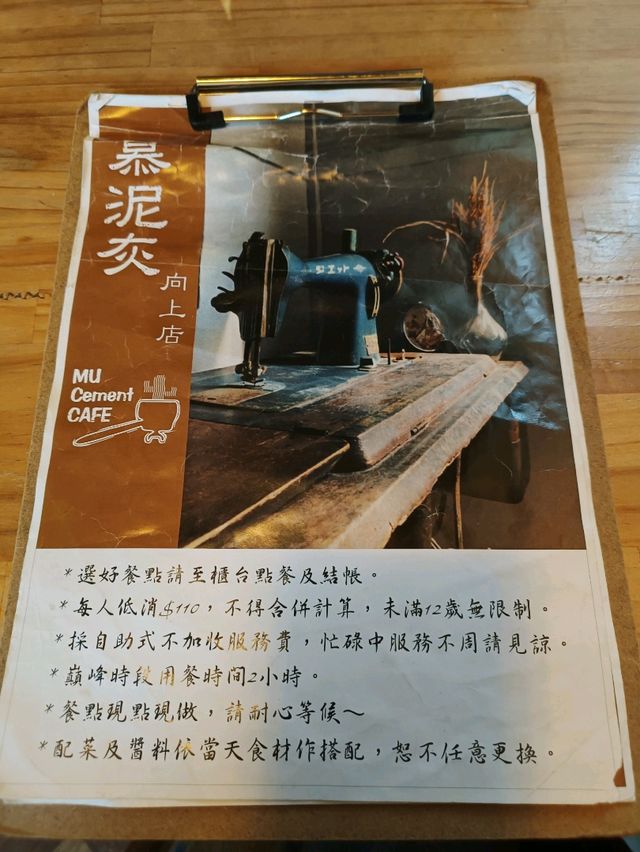 慕泥灰
向上店
MU
Cement
CAFE
*選好餐點請至櫃台點餐及結帳。
*每人低消$110，不得合併計算，未滿12歲無限制。
*採自助式不加收服務費，忙碌中服務不周請見諒。
*巔峰時段用餐時間2小時。
*餐點現點現做，請耐心等候～
*配菜及醬料依當天食材作搭配，恕不任意更換。